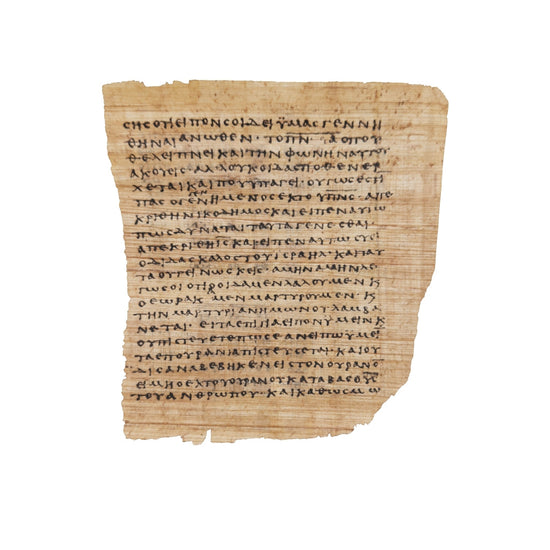 ϹΗϹΟΤΙΕΙΠΟΝϹΟΙΔΕΙΫΜΑϹΓΕΝΝΗ
ΘΗΝΑΙΑΝΩΘΕΝ· ΤΟΠ̅Ν̅Α̅ΟΠΟΥ
ΘΕΛΕΙΠΝΕΙΚΑΙΤΗΝΦΩΝΗΝΑΥΤΟΥ
ΑΚΟΥΕΙϹΑΛΛΟΥΚΟΙΔΑϹΠΟΘΕΝΕΡ
ΧΕΤΑΙΚΑΙΠΟΥΥΠΑΓΕΙ· ΟΥΤΩϹΕϹΤΙ
ΠΑϹΟΓΕΓΕΝΝΗΜΕΝΟϹΕΚΤΟΥΠ̅Ν̅Ϲ̅· ΑΠΕ
ΚΡΙΘΗΝΙΚΟΔΗΜΟϹΚΑΙΕΙΠΕΝΑΥΤΩ
ΠΩϹΔΥΝΑΤΑΙΤΑΥΤΑΓΕΝΕϹΘΑΙ·
ΑΠΕΚΡΙΘΗΙ̅Ϲ̅ΚΑΙΕΙΠΕΝΑΥΤΩϹΥΕΙ
ΟΔΙΔΑϹΚΑΛΟϹΤΟΥΙϹΡΑΗΛΚΑΙΤΑΥ
ΤΑΟΥΓΕΙΝΩϹΚΕΙϹ· ΑΜΗΝΑΜΗΝΛΕ
ΓΩϹΟΙΟΤΙΟΟΙΔΑΜΕΝΛΑΛΟΥΜΕΝΚ
ΟΕΩΡΑΚΜΕΝΜΑΡΤΥΡΟΥΜΕΝΚ
ΤΗΝΜΑΡΤΥΡΙΑΝΗΜΩΝΟΥΛΑΜΒΑ
ΝΕΤΑΙ· ΕΙΤΑΕΠΙΓΙΑΕΙΠΟΝΥΜΕΙΝΚ
ΟΥΠΙϹΤΕΥΕΤΕΠΩϹΕΑΝΕΙΠΩΥΜΕΙ
ΤΑΕΠΟΥΡΑΝΙΑΠΙϹΤΕΥϹΕΤΑΙ· ΚΑΙΟΥ
ΔΙϹΑΝΑΒΕΒΗΚΕΝΕΙϹΤΟΝΟΥΡΑΝΟ
ΕΙΜΗΟΕΚΤΟΥΟΥΡΑΝΟΥΚΑΤΑΒΑϹΟΥ̅Ϲ̅
ΤΟΥΑΝΘΡΩΠΟΥ· ΚΑΙΚΑΘΩϹΜΩ